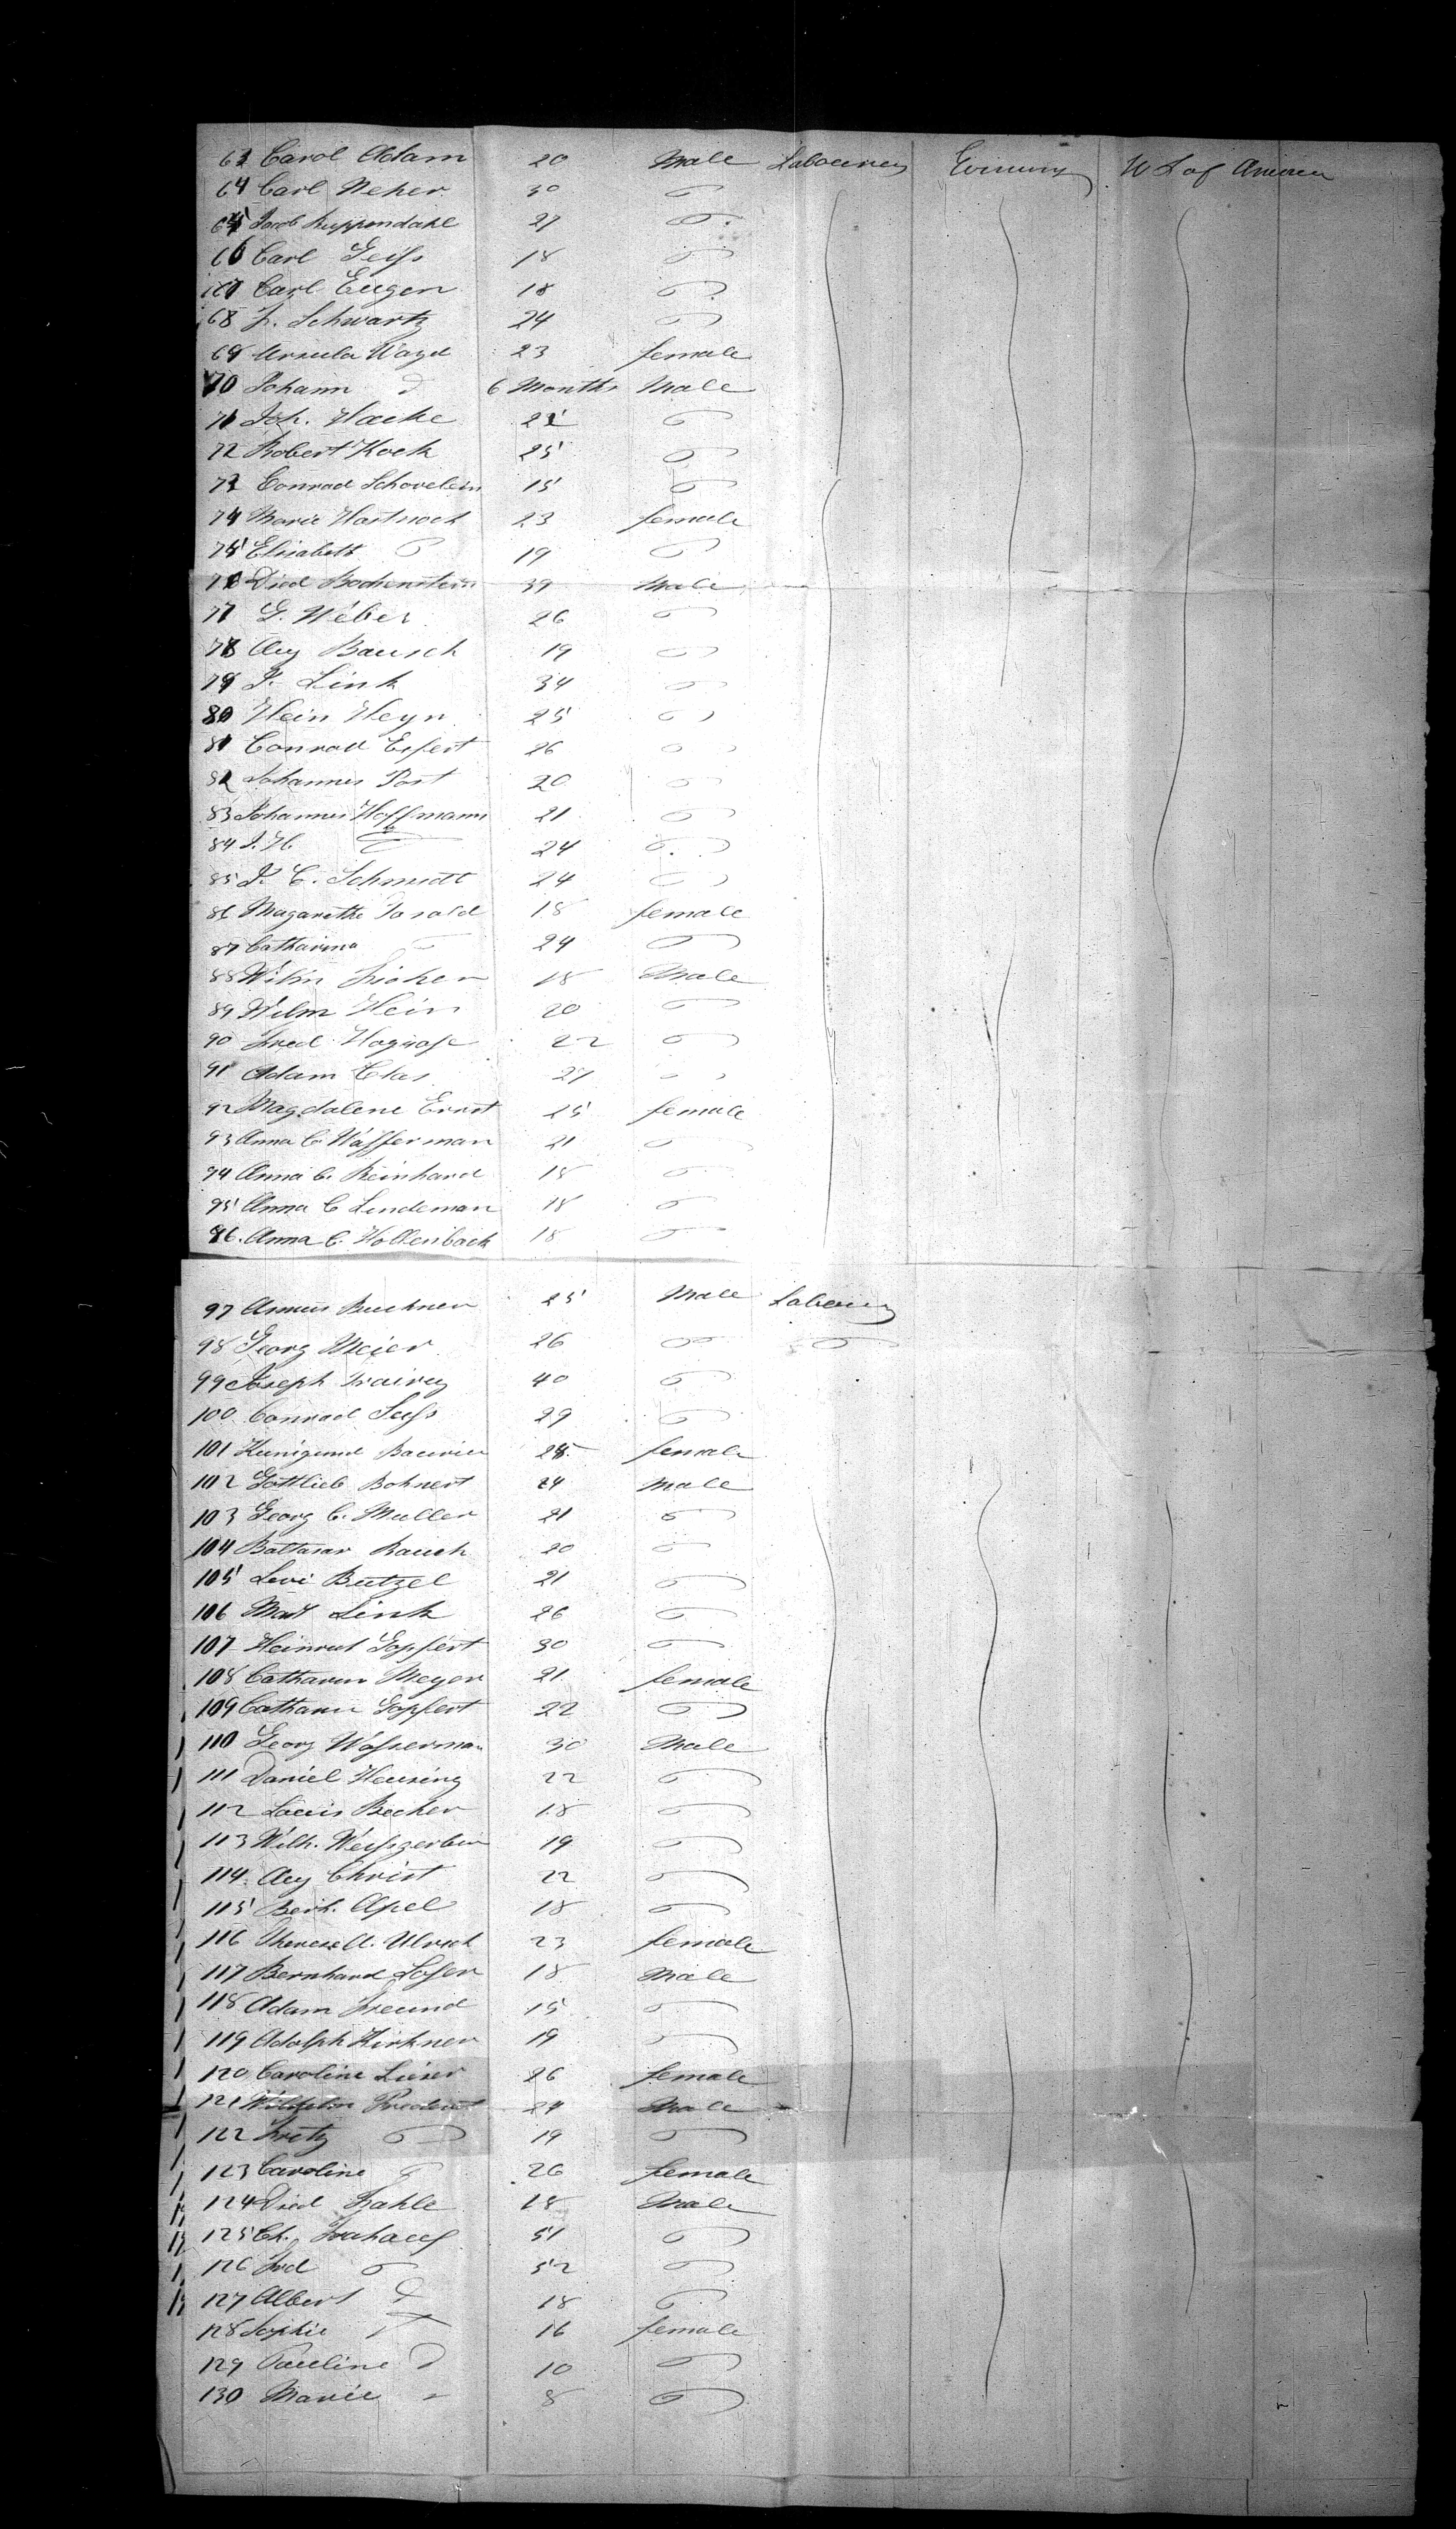 63 Carol Adam 20 Male Labourer Germany U S of America
64 Carl Neher 30 do
65 Jacob Kuppendahl 27 do
66 Carl Geiss 18 do
67 Carl Eugen 18 do
68 Fr. Schwartz 24 do
69 Ursula Wagd 23 female
70 Johann do 6 Months Male
71 Joh. Hacke do
72 Robert Koch 25 do
73 Conrad Schovelein 15 do
74 Marie Hartnoch 23 female
75 Elisabeth do 19 do
76 Died Bodenstein 39 Male
77 G. Weber 26 do
78 Aug Bausch 19 do
79 J. Link 34 do
80 Hein Heyn 25 do
81 Conrad Eifert 26 do
82 Johannes Post 20 do
83 Johannes Hoffmann 21 do
84 J. H. do 24 do
85 J. C. Schmidt 24 do
86 Magarethe Josald 18 female
87 Catharina do 24 do
88 Wilm Fricken 18 Male
89 Wilm Hein 20 do
90 Fred 22 do
91 Adam Clas 27 do
92 Magdalene Ernst 25 female
93 Anna C Wasserman 21 do
94 Anna C. Reinhard 18 do
95 Anna C Lindeman 18 do
96. Anna C. Hollenbach 18 do
97 Buchner 25 Male Labourer
98 Georg Meier 26 do do
99 Joseph 40 do
100 Conrad Suss 29 do
101 Kunigund female
102 Gottlieb Bohnert 24 Male
103 Georg C. Muller 21 do
104 Baltasar Rauch 20 do
105 Levi Butzel 21 do
106 Mart Link 26 do
107 Heinrich Gopfert 30 do
108 Catharin Meyer 21 female
109 Catharin Gopfert 22 do
110 Georg Wasserman 30 Male
111 Daniel Heusing 22 do
112 Louis Becker 18 do
113 Wilh. Weissgerber 19 do
114. Aug Christ 22 do
115 Berh. Apel 18 do
116 Therese A. Ulrich 23 female
117 Bernhard Loser 18 Male
118 Adam Freund 15 do
119 Adolph Kirkner 19 do
120 Caroline 26 female
121 Wilhelm 24 Male
122 Fretz do 19 do
123 Caroline do 26 female
124 Died Frahle 18 Male
125 Ch. 51 do
126 Frd do 52 do
127 Albert do 18 do
128 Sophie do 16 female
129 Pauline do 10 do
130 Marie " 8 do